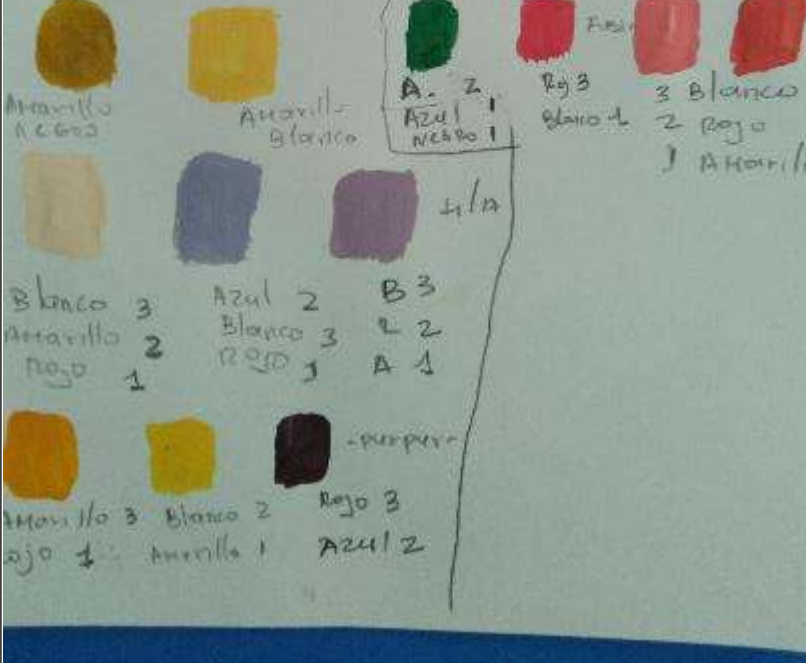 Amarillo
Negro
Amarillo
Blanco
A. 2
Azul 1
Negro 1
Roj 3
Blanco 1
3 Blanco
2 Rojo
1 Amarill
Blanco 3
Amarillo 2
Rojo 1
Azul 2
Blanco 3
Rojo 1
B 3
R 2
A 1
Amarillo 3
ojo 1
Blanco 2
Amarillo 1
-purpur-
Rojo 3
Azul 2